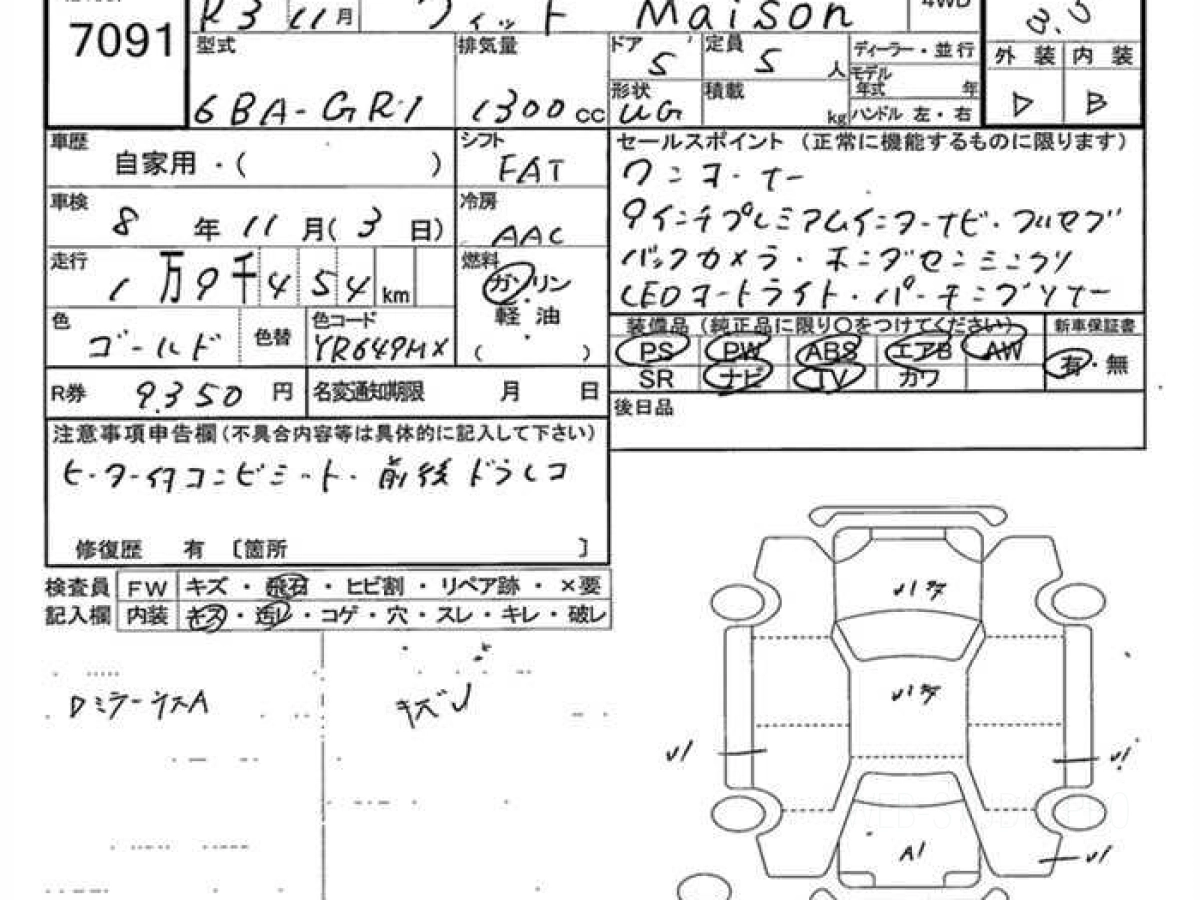 7091
R3 11月 フィット Maison 4WD
型式 6BA-GR1
排気量 1300cc
ドア 5
定員 5人
ディーラー・並行
モデル年式 年
形状 UG
積載 kg
ハンドル 左・右
外装 内装
D B
車歴 自家用・( )
シフト FAT
セールスポイント (正常に機能するものに限ります)
ワンオーナー
9インチプレミアムインターナビ・フルセグ
バックカメラ・ホンダセンシング
LEDオートライト・パーキングソナー
車検 8年11月(3日)
冷房 AAC
走行 1万9千454km
燃料 ガソリン
軽・油
( )
色 ゴールド 色替
色コード YR649MX
装備品 (純正品に限り〇をつけてください) 新車保証書
PS PW ABS エアB AW 有・無
SR ナビ TV カワ
R券 9.350円
名変通知期限 月 日
後日品
注意事項申告欄(不具合内容等は具体的に記入して下さい)
ヒーター付コンビシート・前後ドラレコ
修復歴 有 〔箇所 〕
検査員 FW キズ・飛石・ヒビ割・リペア跡・×要
記入欄 内装 キズ・汚レ・コゲ・穴・スレ・キレ・破レ
DミラーキズA
キズ
U1
U1
U1
A1